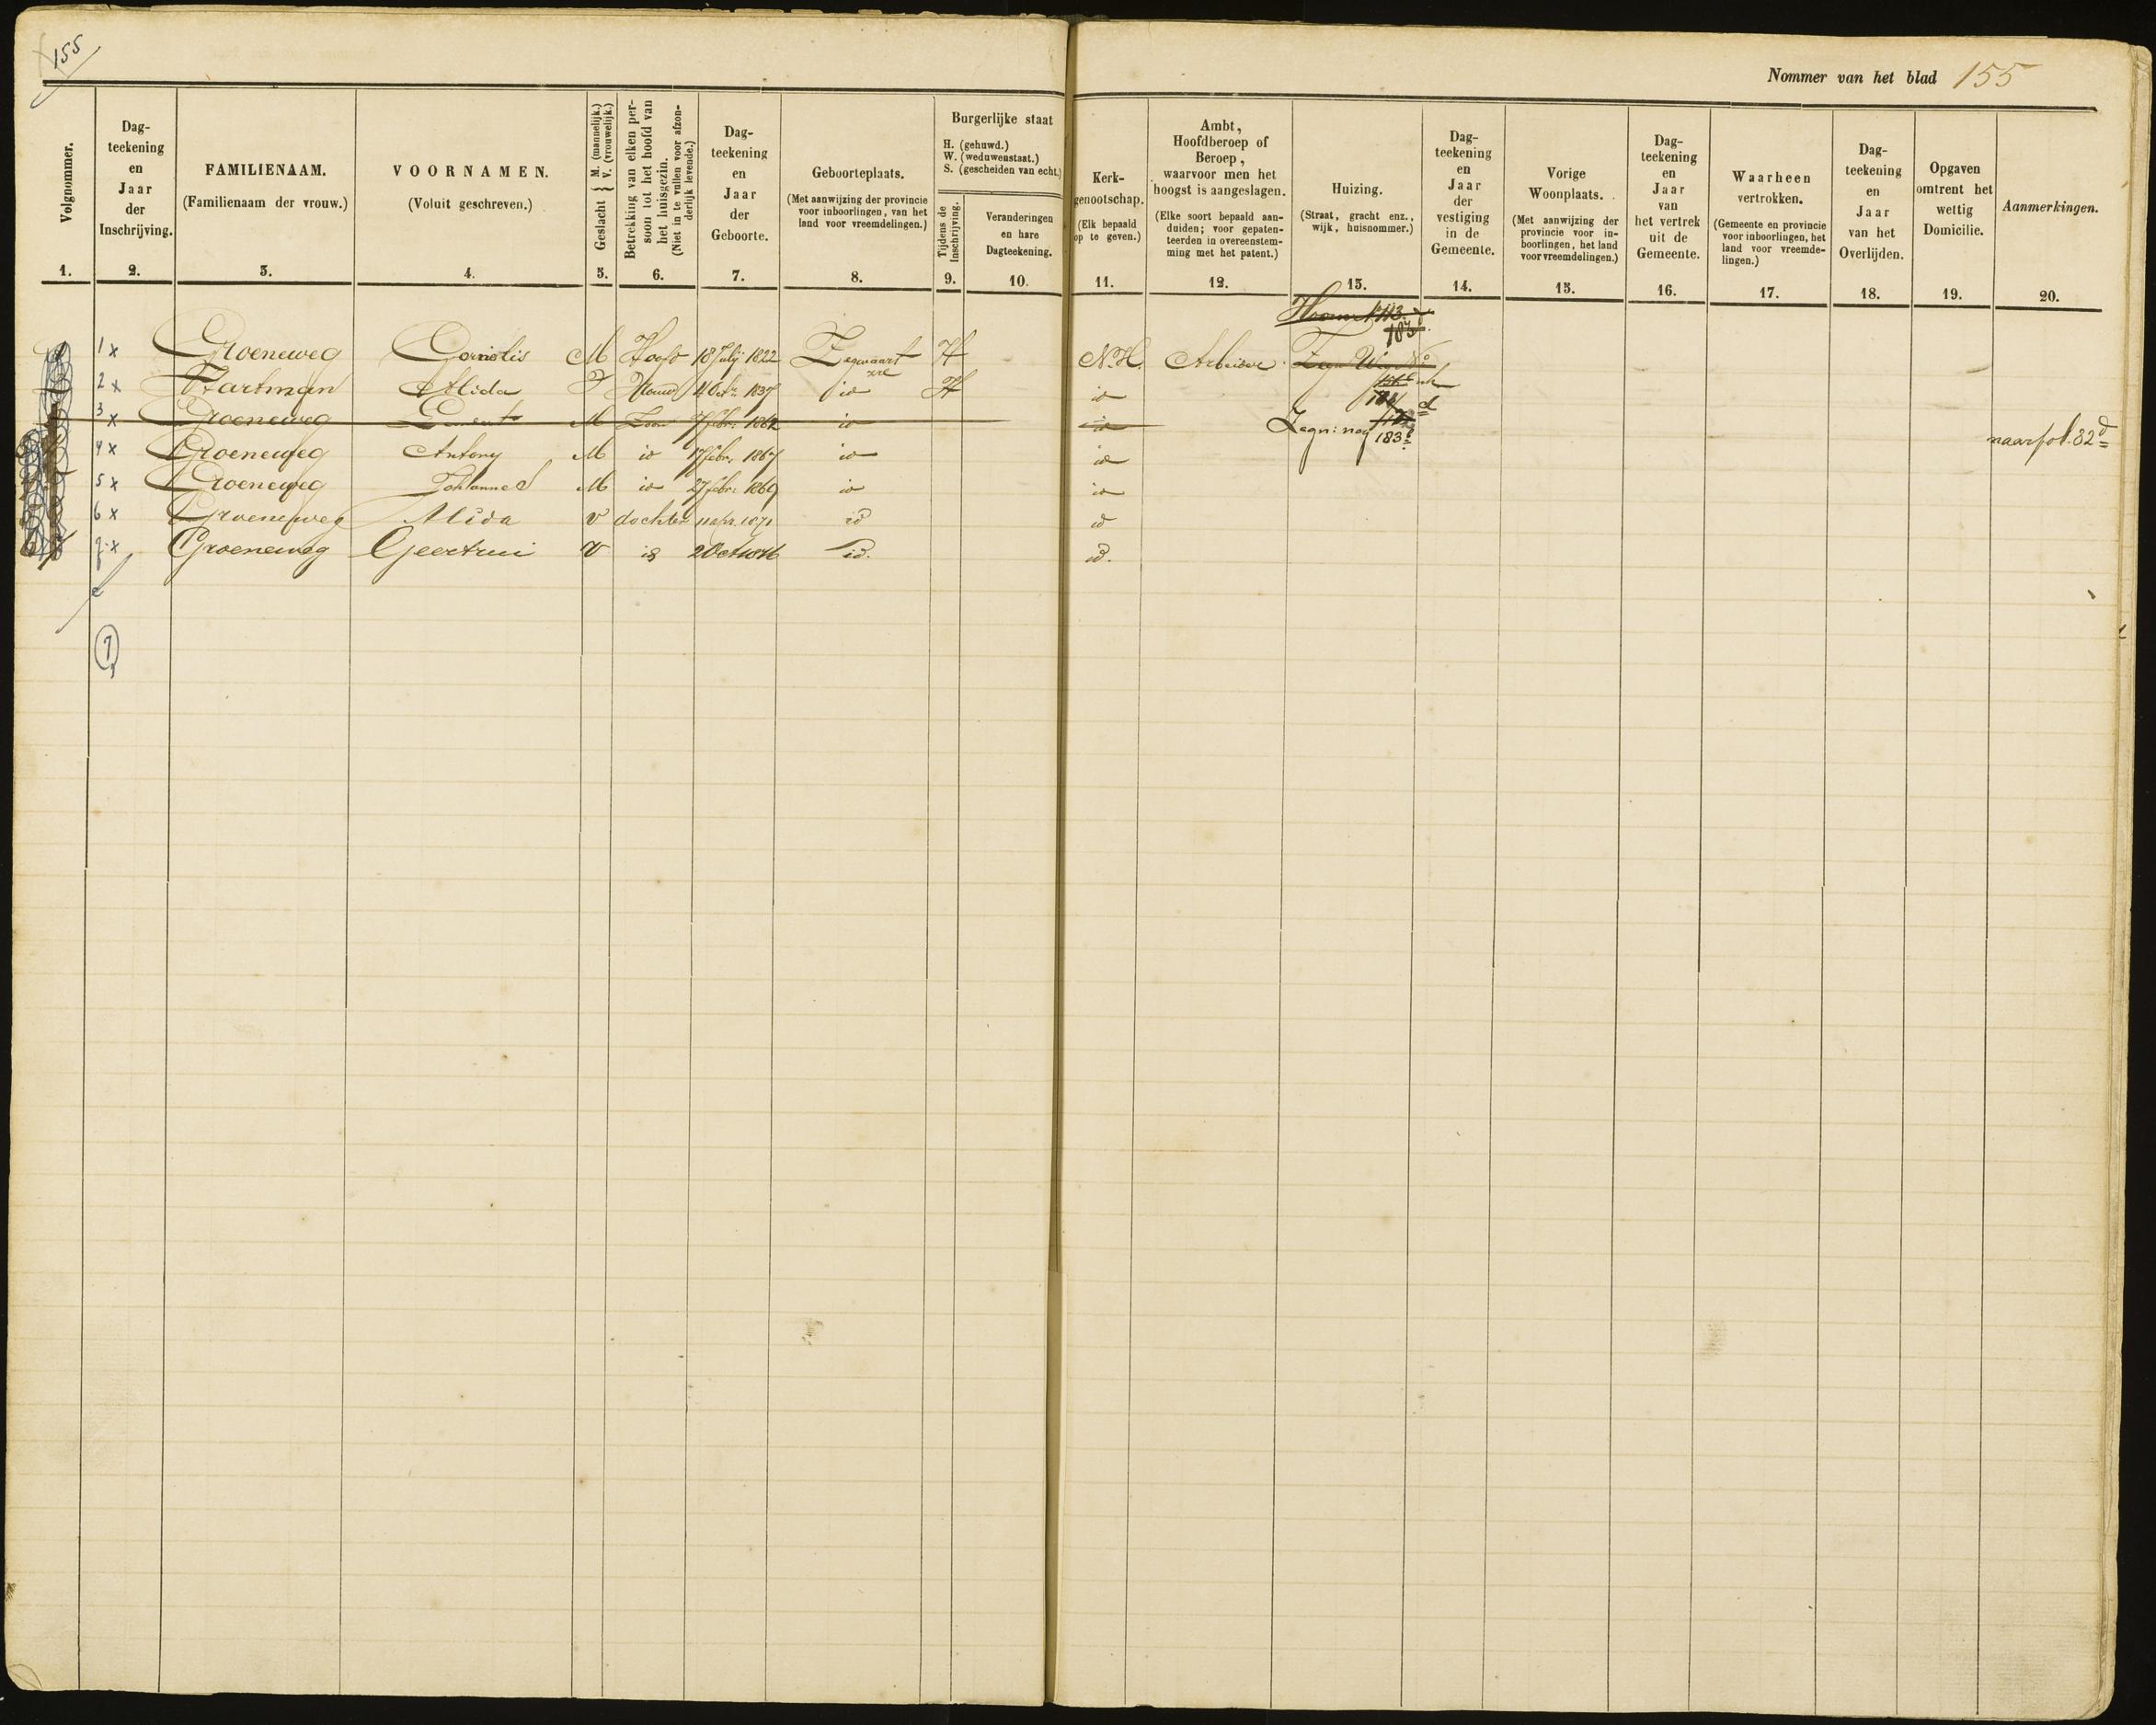 155
Nommer van het blad 155
Volgnommer.
1.
Dag-
teekening
en
Jaar
der
Inschrijving.
2.
FAMILIENAAM.
(Familienaam der vrouw.)
3.
VOORNAMEN.
(Voluit geschreven.)
4.
Geslacht { M. (mannelijk.)
V. (vrouwelijk.)
5.
Betrekking van elken per-
soon tot het hoofd van
het huisgezin.
(Niet in te vullen voor afzon-
derlijk levende.)
6.
Dag-
teekening
en
Jaar
der
Geboorte.
7.
Geboorteplaats.
(Met aanwijzing der provincie
voor inboorlingen, van het
land voor vreemdelingen.)
8.
Burgerlijke staat
H. (gehuwd.)
W. (weduwenstaat.)
S. (gescheiden van echt.)
Tijdens de
inschrijving.
9.
Veranderingen
en hare
Dagteekening.
10.
Kerk-
genootschap.
(Elk bepaald
op te geven.)
11.
Ambt,
Hoofdberoep of
Beroep,
waarvoor men het
hoogst is aangeslagen.
(Elke soort bepaald aan-
duiden; voor gepaten-
teerden in overeenstem-
ming met het patent.)
12.
Huizing.
(Straat, gracht enz.,
wijk, huisnommer.)
13.
Dag-
teekening
en
Jaar
der
vestiging
in de
Gemeente.
14.
Vorige
Woonplaats.
(Met aanwijzing der
provincie voor in-
boorlingen, het land
voor vreemdelingen.)
15.
Dag-
teekening
en
Jaar
van
het vertrek
uit de
Gemeente.
16.
Waarheen
vertrokken.
(Gemeente en provincie
voor inboorlingen, het
land voor vreemde-
lingen.)
17.
Dag-
teekening
en
Jaar
van het
Overlijden.
18.
Opgaven
omtrent het
wettig
Domicilie.
19.
Aanmerkingen.
20.
1 x Groeneweg Cornelis M Hoofd 18 Julij 1822 Zegwaart H N.H. Arbeider
2 x Hartman Alida V Vrouw 4 Oct. 1837 id H id
3 x Groeneweg M Zoon 7 febr: 1862 id id
4 x Groeneweg Antony M id 17 febr. 1867 id id
5 x Groeneweg Johannes M id 27 febr: 1869 id id
6 x Groeneweg Alida V dochter 11 apr. 1871 id id
7 x Groeneweg Geertrui V id 2 Oct 1876 id. id.
183
naar fol. 82d
7